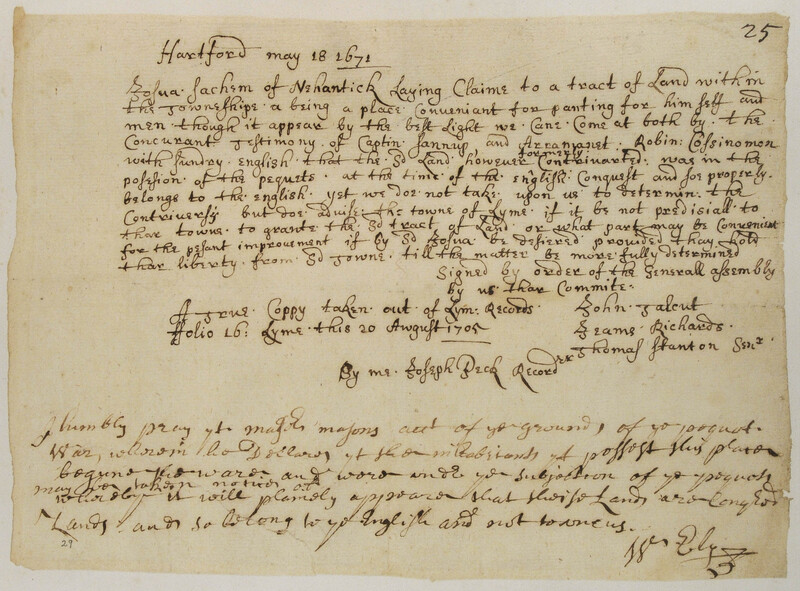 25
Hartford may 18 1671
Josua sachem of Nehantick Laying Claime to a tract of Land with in
the Towneshipe a being a place Conveniant for panting for him self and
men though it appear by the best Light we Cane Come at both by the
Concurant Testimony of Captin Sannup and Robin: Cossinomon
formerly
with sundry english that the sd Land however Contrivarted: was in the
possesion of the pequets at the time of the english: Conquest and soe properly
belongs to the english yet we doe not take upon us to determin: the
Contriversy but doe advise the towne of Lyme if it be not predisiall to
thar towne to grante the sd tract of Land or what part may be Conveniant
for the pesant improvment if by sd Josua be desiered provided thay hold
thar liberty from sd Towne till the matter be more fully determined
Signed by order of the Generall assembly
by us thar Commite:
A True Coppy taken out of Lym: Records John Talcut
ffolio 16: Lyme this 20 Awgust 1705 Jeams Richards
Thomas Stanton Senr
By me Joseph Peck Recordrr
I humbly pray yt majr masons acct of ye grounds of ye pequot
War, wherein he Declares yt the inhabitants yt possest this place
begune the ware and were undr ye subjection of ye pequots
may be taken notice off
whereby it will plainely appeare that theise Lands are Conqred
Lands and so belong to ye English and not to uncus.
Wm Ely
29